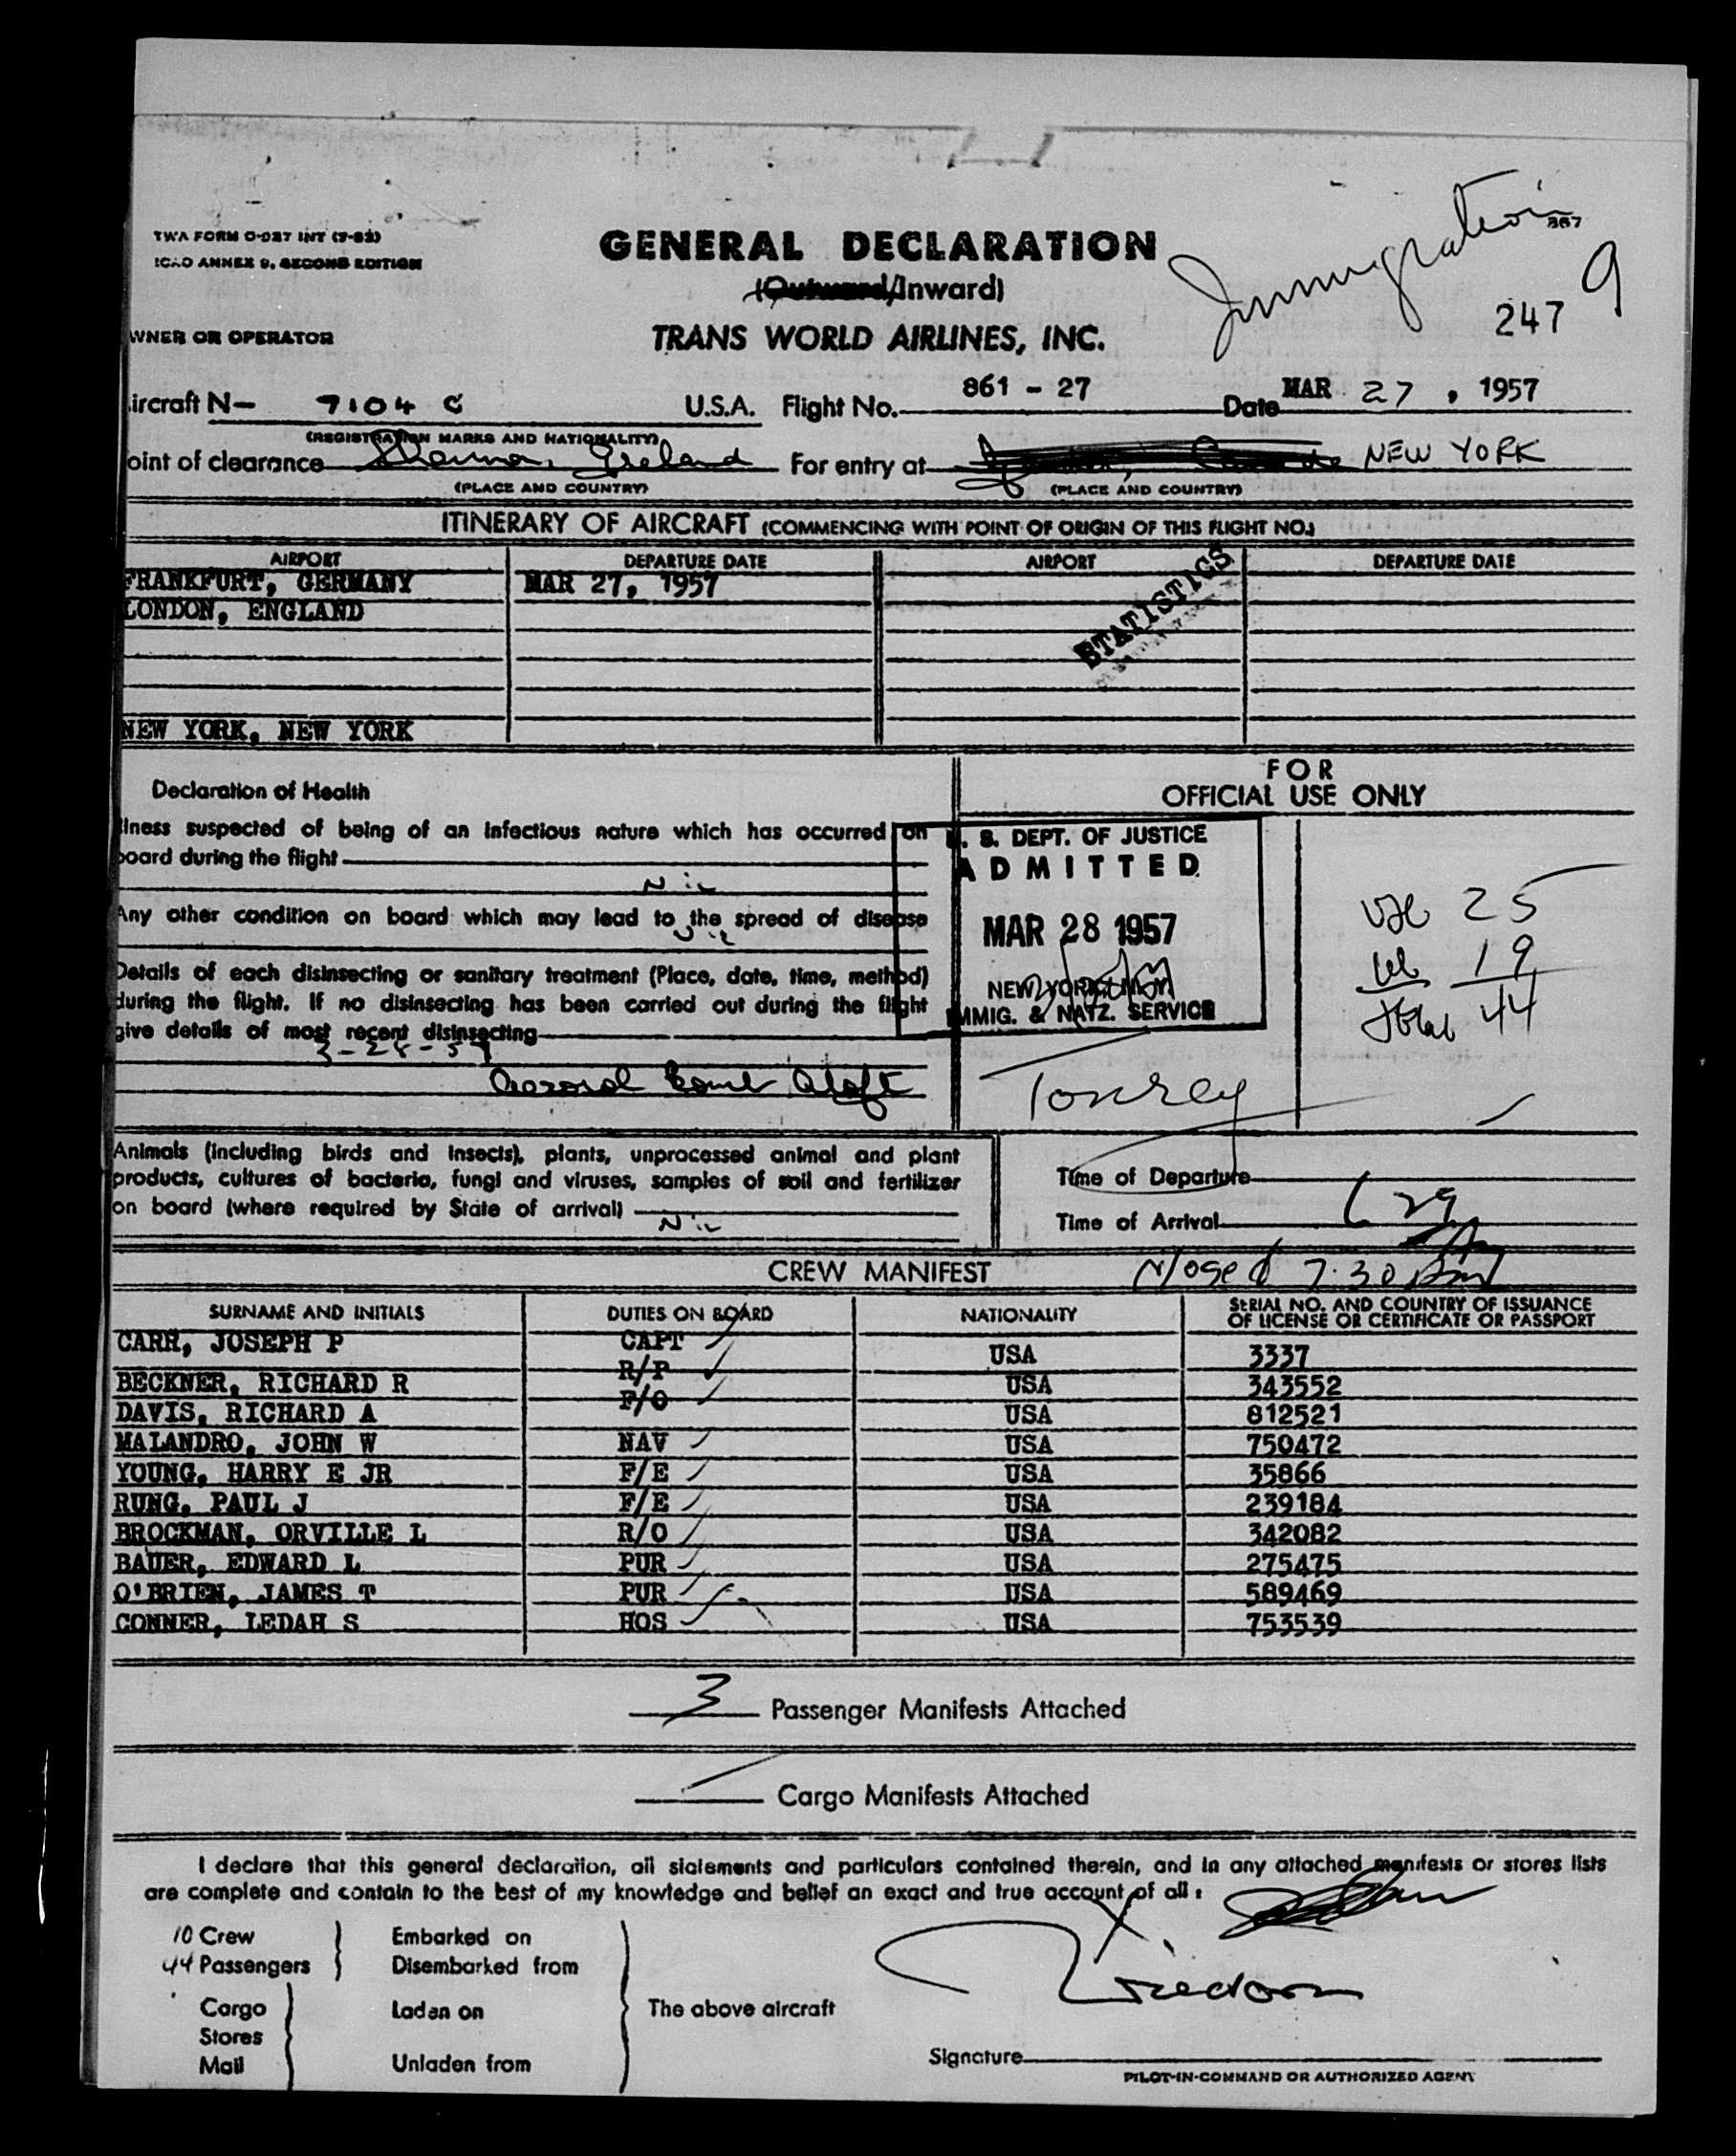 TWA FORM O-027 INT
ICAO ANNEX 9, SECOND EDITION
GENERAL DECLARATION
(Outward/Inward)
Immigration
867
247 9
WNER OR OPERATOR
TRANS WORLD AIRLINES, INC.
ircraft N- 7104 C U.S.A. Flight No. 861 - 27 Date MAR 27, 1957
(REGISTRATION MARKS AND NATIONALITY)
oint of clearance Shannon, Ireland For entry at NEW YORK
(PLACE AND COUNTRY) (PLACE AND COUNTRY)
ITINERARY OF AIRCRAFT (COMMENCING WITH POINT OF ORIGIN OF THIS FLIGHT NO.)
AIRPORT DEPARTURE DATE AIRPORT DEPARTURE DATE
FRANKFURT, GERMANY MAR 27, 1957
LONDON, ENGLAND
STATISTICS
NEW YORK, NEW YORK
Declaration of Health
FOR
OFFICIAL USE ONLY
llness suspected of being of an infectious nature which has occurred on
board during the flight
Nil
Any other condition on board which may lead to the spread of disease
Nil
Details of each disinsecting or sanitary treatment (Place, date, time, method)
during the flight. If no disinsecting has been carried out during the flight
give details of most recent disinsecting
Aerosol Bomb Aloft
U. S. DEPT. OF JUSTICE
ADMITTED
MAR 28 1957
NEW YORK, N.Y.
IMMIG. & NATZ. SERVICE
25
19
Total 44
Animals (including birds and insects), plants, unprocessed animal and plant
products, cultures of bacteria, fungi and viruses, samples of soil and fertilizer
on board (where required by State of arrival)
Nil
Time of Departure
Time of Arrival 629
7:30
CREW MANIFEST
SURNAME AND INITIALS DUTIES ON BOARD NATIONALITY SERIAL NO. AND COUNTRY OF ISSUANCE
OF LICENSE OR CERTIFICATE OR PASSPORT
CARR, JOSEPH P CAPT USA 3337
BECKNER, RICHARD R R/P USA 343552
DAVIS, RICHARD A F/O USA 812521
MALANDRO, JOHN W NAV USA 750472
YOUNG, HARRY E JR F/E USA 35866
RUNG, PAUL J F/E USA 239184
BROCKMAN, ORVILLE L R/O USA 342082
BAUER, EDWARD L PUR USA 275475
O'BRIEN, JAMES T PUR USA 589469
CONNER, LEDAH S HOS USA 753539
3 Passenger Manifests Attached
Cargo Manifests Attached
I declare that this general declaration, all statements and particulars contained therein, and in any attached manifests or stores lists
are complete and contain to the best of my knowledge and belief an exact and true account of all:
10 Crew Embarked on
44 Passengers Disembarked from
Cargo Laden on The above aircraft
Stores
Mail Unladen from
Signature
PILOT-IN-COMMAND OR AUTHORIZED AGENT